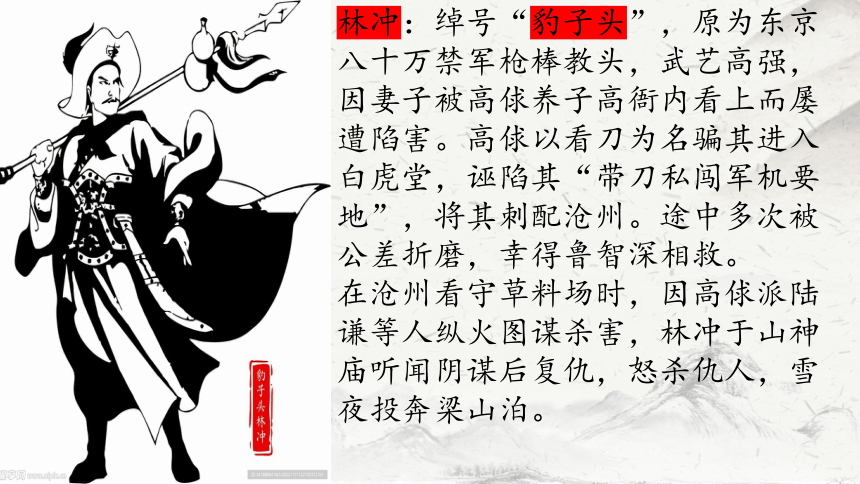 林冲：绰号“豹子头”，原为东京
八十万禁军枪棒教头，武艺高强，
因妻子被高俅养子高衙内看上而屡
遭陷害。高俅以看刀为名骗其进入
白虎堂，诬陷其“带刀私闯军机要
地”，将其刺配沧州。途中多次被
公差折磨，幸得鲁智深相救。
在沧州看守草料场时，因高俅派陆
谦等人纵火图谋杀害，林冲于山神
庙听闻阴谋后复仇，怒杀仇人，雪
夜投奔梁山泊。
豹子头林冲